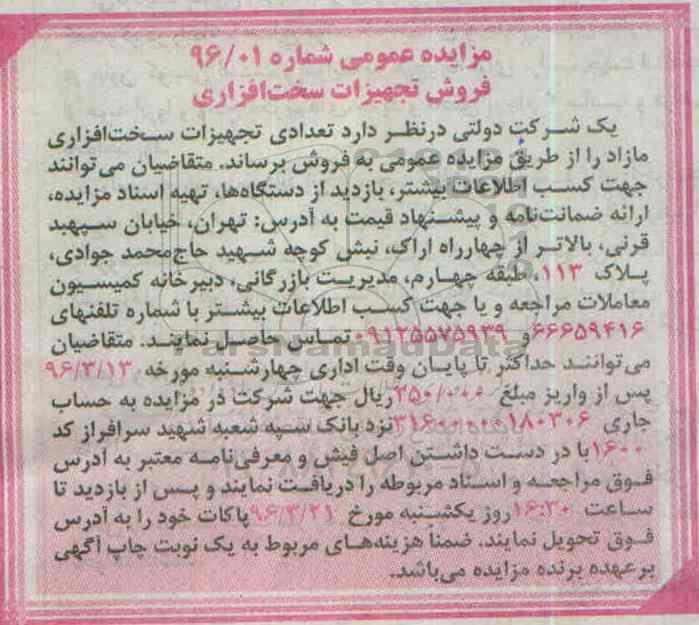 مزایده عمومی شماره ۹۶/۰۱
فروش تجهیزات سخت‌افزاری
یک شرکت دولتی درنظر دارد تعدادی تجهیزات سخت‌افزاری
مازاد را از طریق مزایده عمومی به فروش برساند. متقاضیان می‌توانند
جهت کسب اطلاعات بیشتر، بازدید از دستگاه‌ها، تهیه اسناد مزایده،
ارائه ضمانت‌نامه و پیشنهاد قیمت به آدرس: تهران، خیابان سپهبد
قرنی، بالاتر از چهارراه اراک، نبش کوچه شهید حاج‌محمد جوادی،
پلاک ۱۱۳، طبقه چهارم، مدیریت بازرگانی، دبیرخانه کمیسیون
معاملات مراجعه و یا جهت کسب اطلاعات بیشتر با شماره تلفنهای
۶۶۶۵۹۴۱۶ و ۰۹۱۲۵۵۷۵۹۳۹ تماس حاصل نمایند. متقاضیان
ParsNamadData
می‌توانند حداکثر تا پایان وقت اداری چهارشنبه مورخه ۹۶/۳/۱۳
پس از واریز مبلغ ۳۵۰/۰۰۰ ریال جهت شرکت در مزایده به حساب
جاری نزد بانک سپه شعبه شهید سرافراز کد
۱۶۰۰ با در دست داشتن اصل فیش و معرفی‌نامه معتبر به آدرس
فوق مراجعه و اسناد مربوطه را دریافت نمایند و پس از بازدید تا
ساعت ۱۶:۳۰ روز یکشنبه مورخ ۹۶/۳/۲۱ پاکات خود را به آدرس
فوق تحویل نمایند. ضمنا هزینه‌های مربوط به یک نوبت چاپ آگهی
برعهده برنده مزایده می‌باشد.